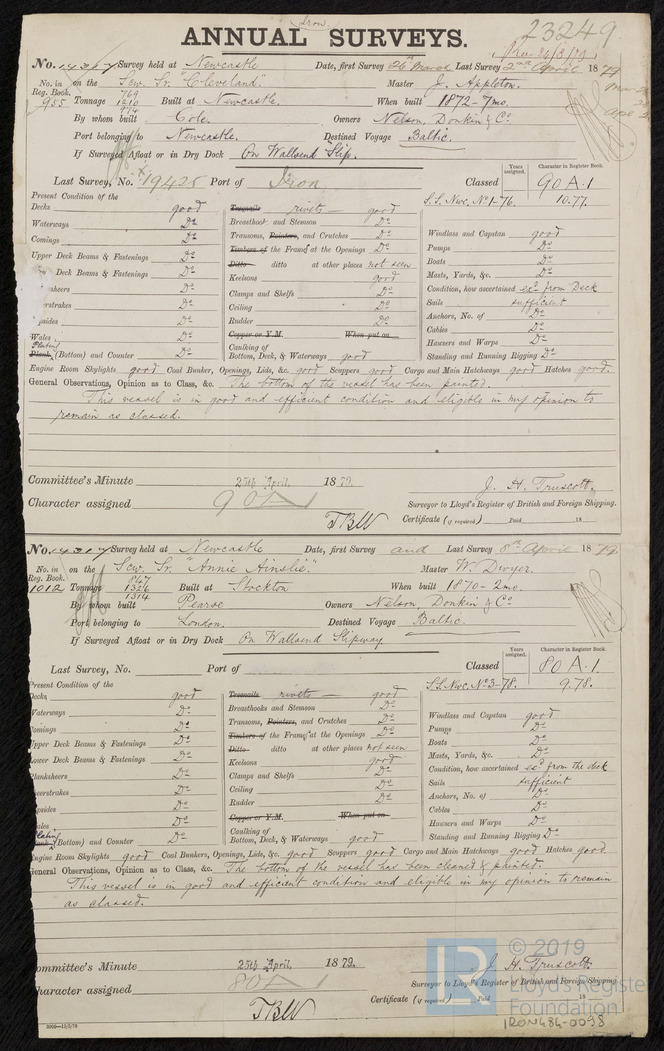 Iron.
23249
ANNUAL SURVEYS.
No. 14367 Survey held at Newcastle Date, first Survey 26th March Last Survey 2nd April 1879
No. in on the Scw. Sr. "Cleveland." Master J. Appleton.
Reg. Book.
955 Tonnage 769 1210 974 Built at Newcastle. When built 1872-7mo.
By whom built Cole. Owners Nelson, Donkin & Co.
Port belonging to Newcastle. Destined Voyage Baltic.
If Surveyed Afloat or in Dry Dock On Wallsend Slip.
Last Survey, No. 19425 Port of Iron Classed Years assigned. Character in Register Book. 90 A.1
S.S. Nwc. No 1-76. 10.77.
Present Condition of the
Decks good Treenails rivets good
Waterways Do Breasthooks and Stemson Do Windlass and Capstan good
Comings Do Transoms, Pointers, and Crutches Do Pumps Do
Upper Deck Beams & Fastenings Do Timbers of the Frame at the Openings Do Boats Do
Lower Deck Beams & Fastenings Do Ditto ditto at other places not seen Masts, Yards, &c. Do
sheers Do Keelsons good Condition, how ascertained exd from Deck
erstrakes Do Clamps and Shelfs Do Sails sufficient
psides Do Ceiling Do Anchors, No. of Do
Wales Do Rudder Do Cables Do
Plating Copper or Y.M. When put on Hawsers and Warps Do
Plank (Bottom) and Counter Do Caulking of Bottom, Deck, & Waterways good Standing and Running Rigging Do
Engine Room Skylights good Coal Bunker, Openings, Lids, &c. good Scuppers good Cargo and Main Hatchways good Hatches good.
General Observations, Opinion as to Class, &c. The bottom of the vessel has been painted.
This vessel is in good and efficient condition and eligible in my opinion to
remain as classed.
Committee's Minute 25th April, 1879. J. H. Truscott.
Character assigned 90A Surveyor to Lloyd's Register of British and Foreign Shipping.
TBW Certificate (if required) Paid 18
No. 14317 Survey held at Newcastle Date, first Survey and Last Survey 8th April 1879.
No. in on the Scw. Sr. "Annie Ainslie." Master W. Dwyer.
Reg. Book.
1012 Tonnage 847 1326 1314 Built at Stockton When built 1870-2mo.
By whom built Pearse Owners Nelson, Donkin & Co.
Port belonging to London. Destined Voyage Baltic.
If Surveyed Afloat or in Dry Dock On Wallsend Slipway
Last Survey, No. Port of Classed Years assigned. Character in Register Book. 80 A.1
S.S. Nwc. No 3-78. 9.78.
Present Condition of the
Decks good Treenails rivets good
Waterways Do Breasthooks and Stemson Do Windlass and Capstan good
Comings Do Transoms, Pointers, and Crutches Do Pumps Do
Upper Deck Beams & Fastenings Do Timbers of the Frame at the Openings Do Boats Do
Lower Deck Beams & Fastenings Do Ditto ditto at other places not seen Masts, Yards, &c. Do
Planksheers Do Keelsons good Condition, how ascertained exd from the deck
erstrakes Do Clamps and Shelfs Do Sails sufficient
psides Do Ceiling Do Anchors, No. of Do
ales Do Rudder Do Cables Do
Plating Copper or Y.M. When put on Hawsers and Warps Do
(Bottom) and Counter Do Caulking of Bottom, Deck, & Waterways good Standing and Running Rigging Do
Engine Room Skylights good Coal Bunkers, Openings, Lids, &c. good Scuppers good Cargo and Main Hatchways good Hatches good
General Observations, Opinion as to Class, &c. The bottom of the vessel has been cleaned & painted.
This vessel is in good and efficient condition and eligible in my opinion to remain
as classed.
Committee's Minute 25th April, 1879. J. H. Truscott.
Character assigned 80A Surveyor to Lloyd's Register of British and Foreign Shipping.
TBW Certificate (if required) Paid 18
LR © 2019 Lloyd's Register Foundation
IRON486-0098